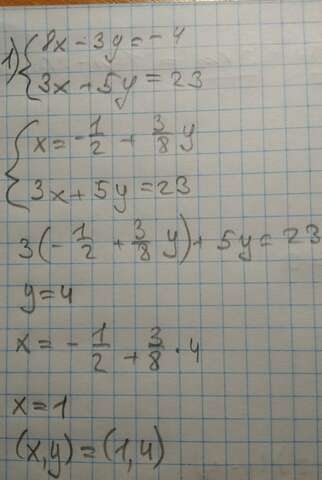 1) { 8x - 3y = -4
3x + 5y = 23
{ x = -1/2 + 3/8 y
3x + 5y = 23
3(-1/2 + 3/8 y) + 5y = 23
y = 4
x = -1/2 + 3/8 · 4
x = 1
(x, y) = (1, 4)